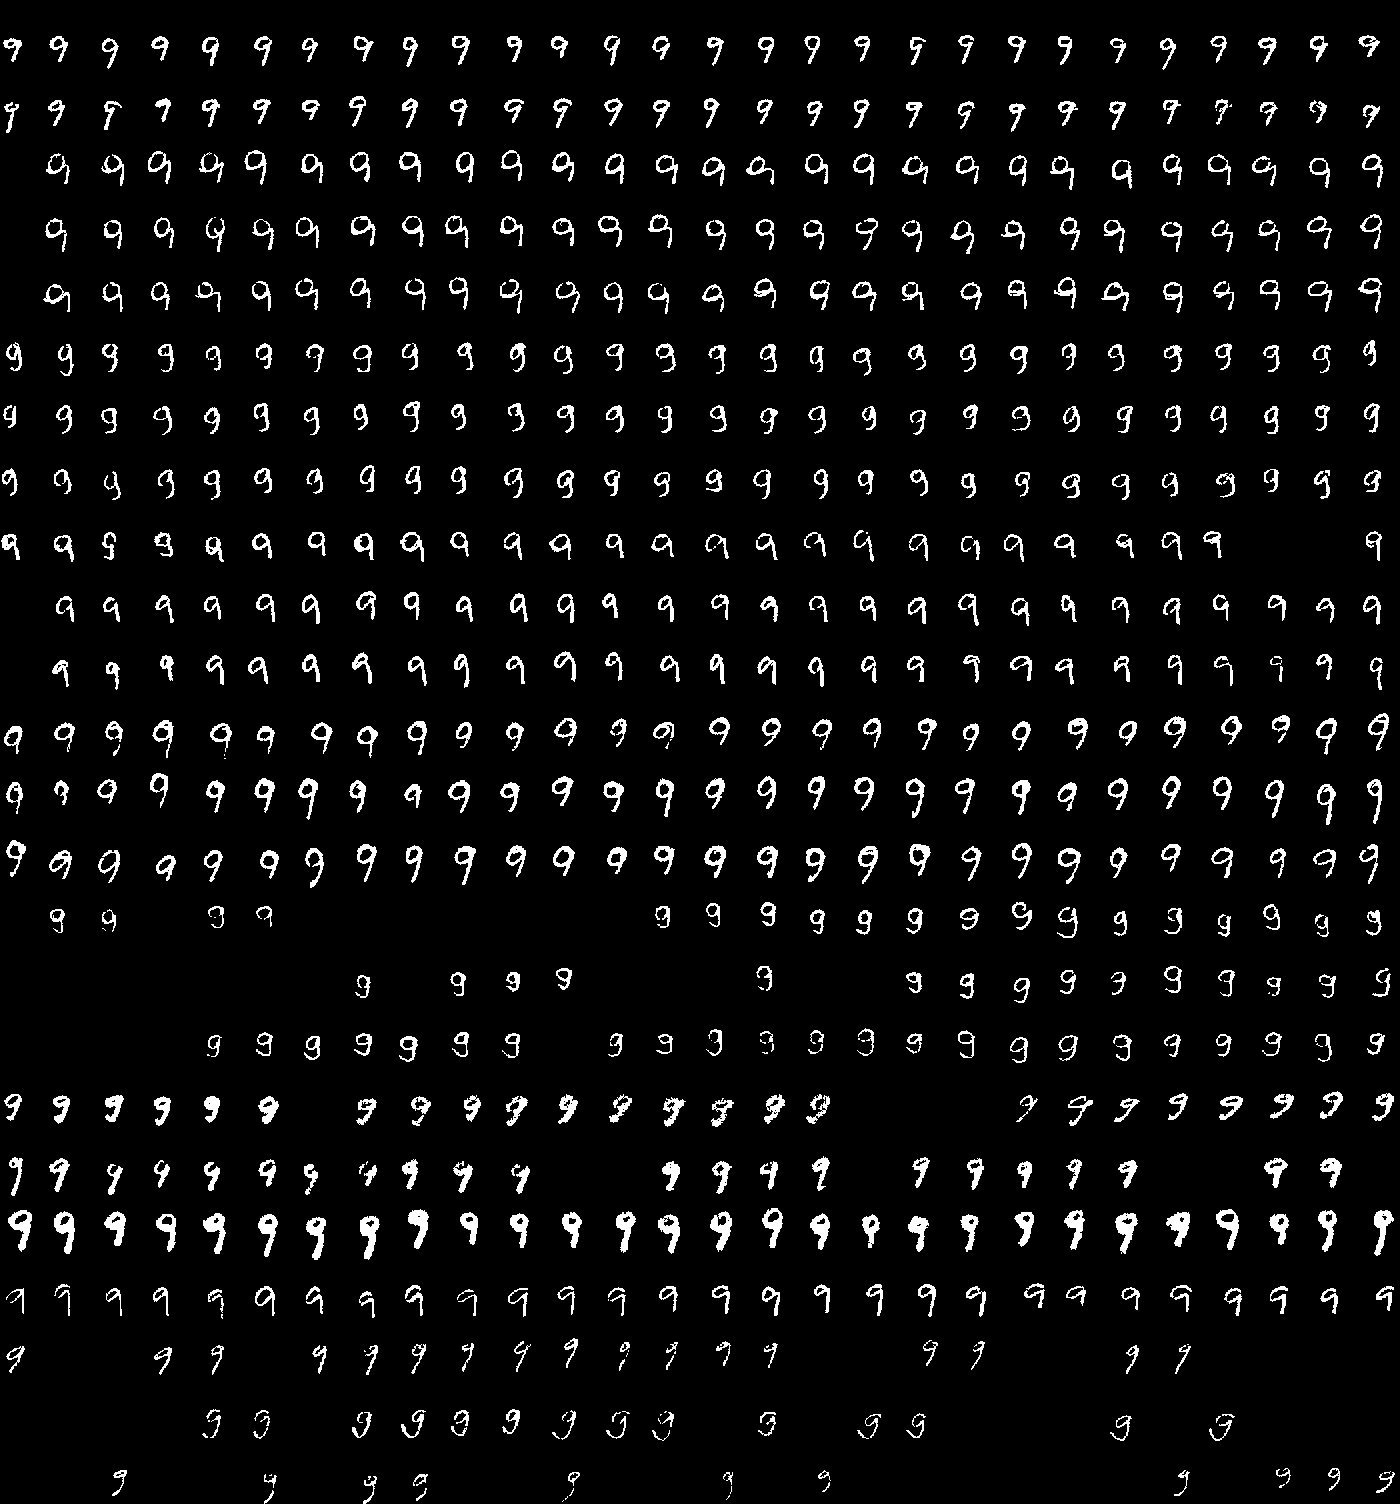 9 9 9 9 9 9 9 9 9 9 9 9 9 9 9 9 9 9 9 9 9 9 9 9 9 9 9 9
9 9 9 9 9 9 9 9 9 9 9 9 9 9 9 9 9 9 9 9 9 9 9 9 9 9 9 9
9 9 9 9 9 9 9 9 9 9 9 9 9 9 9 9 9 9 9 9 9 9 9 9 9 9 9
9 9 9 9 9 9 9 9 9 9 9 9 9 9 9 9 9 9 9 9 9 9 9 9 9 9 9
9 9 9 9 9 9 9 9 9 9 9 9 9 9 9 9 9 9 9 9 9 9 9 9 9 9 9
9 9 9 9 9 9 9 9 9 9 9 9 9 9 9 9 9 9 9 9 9 9 9 9 9 9 9 9
9 9 9 9 9 9 9 9 9 9 9 9 9 9 9 9 9 9 9 9 9 9 9 9 9 9 9 9
9 9 9 9 9 9 9 9 9 9 9 9 9 9 9 9 9 9 9 9 9 9 9 9 9 9 9 9
9 9 9 9 9 9 9 9 9 9 9 9 9 9 9 9 9 9 9 9 9 9 9 9 9 9
9 9 9 9 9 9 9 9 9 9 9 9 9 9 9 9 9 9 9 9 9 9 9 9 9 9 9
9 9 9 9 9 9 9 9 9 9 9 9 9 9 9 9 9 9 9 9 9 9 9 9 9 9 9
9 9 9 9 9 9 9 9 9 9 9 9 9 9 9 9 9 9 9 9 9 9 9 9 9 9 9 9
9 9 9 9 9 9 9 9 9 9 9 9 9 9 9 9 9 9 9 9 9 9 9 9 9 9 9 9
9 9 9 9 9 9 9 9 9 9 9 9 9 9 9 9 9 9 9 9 9 9 9 9 9 9 9 9
9 9 9 9 9 9 9 9 9 9 9 9 9 9 9 9 9 9 9
9 9 9 9 9 9 9 9 9 9 9 9 9 9 9
9 9 9 9 9 9 9 9 9 9 9 9 9 9 9 9 9 9 9 9 9 9 9
9 9 9 9 9 9 9 9 9 9 9 9 9 9 9 9 9 9 9 9 9 9 9 9
9 9 9 9 9 9 9 9 9 9 9 9 9 9 9 9 9 9 9 9 9 9
9 9 9 9 9 9 9 9 9 9 9 9 9 9 9 9 9 9 9 9 9 9 9 9 9 9 9 9
9 9 9 9 9 9 9 9 9 9 9 9 9 9 9 9 9 9 9 9 9 9 9 9 9 9 9 9
9 9 9 9 9 9 9 9 9 9 9 9 9 9 9 9 9
9 9 9 9 9 9 9 9 9 9 9 9 9 9
9 9 9 9 9 9 9 9 9 9 9